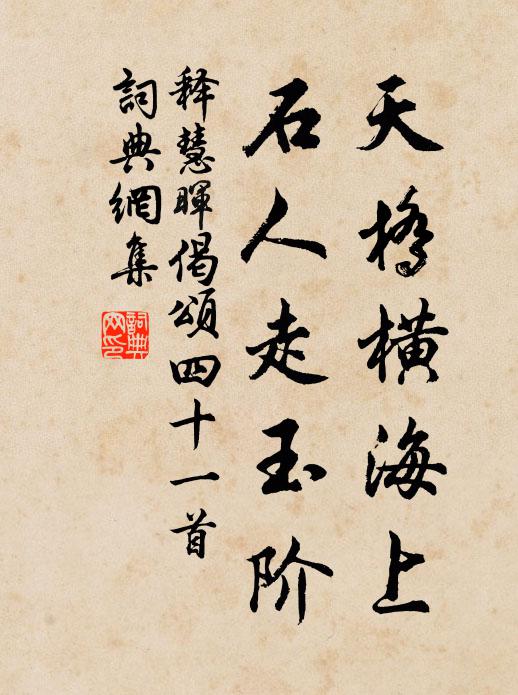 天橋橫海上
石人走玉阶
释慧暉偈頌四十一首
詞典網集
詞典网印